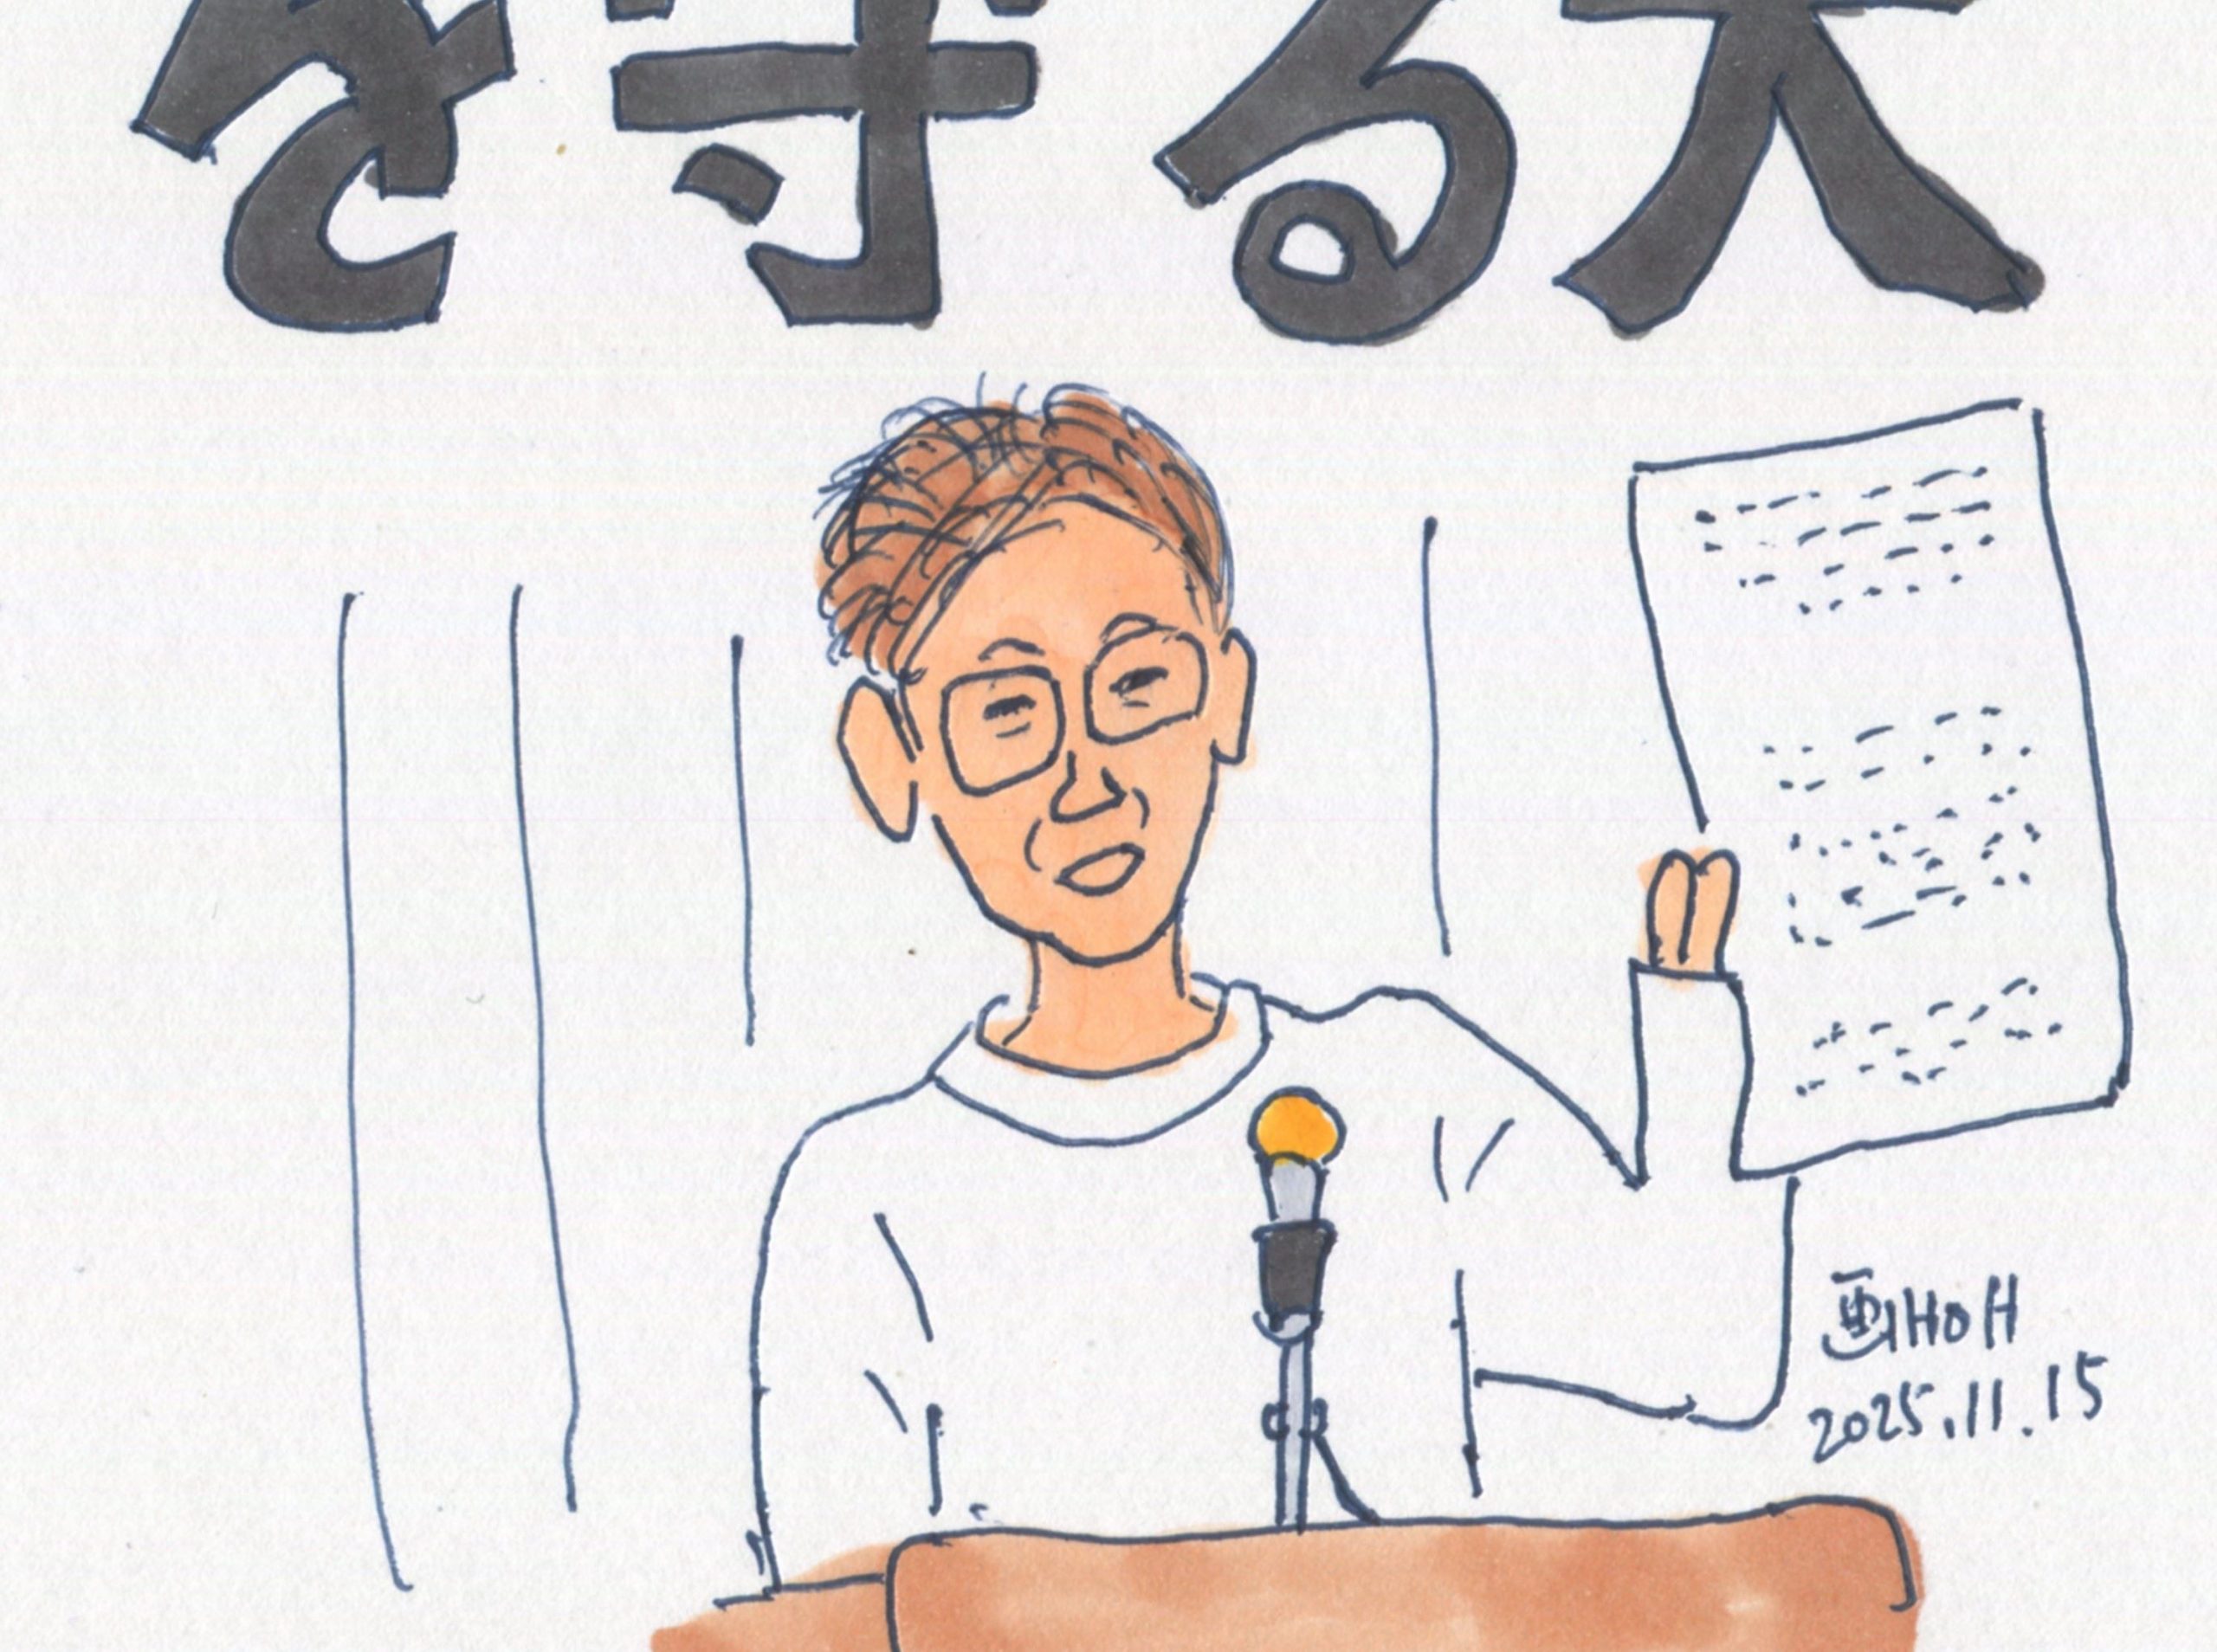 を守る大
画HOH
2025.11.15